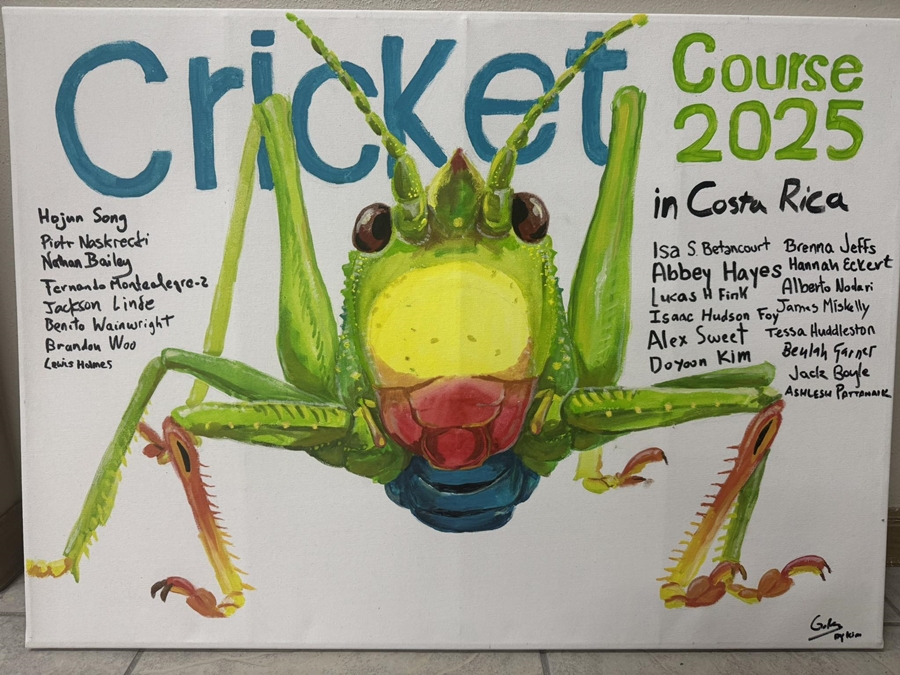 Cricket
Course
2025
in Costa Rica
Hojun Song
Piotr Naskrecki
Nathan Bailey
Fernando Montealegre-Z
Jackson Linde
Benito Wainwright
Brandon Woo
Lewis Holmes
Isa S. Betancourt
Abbey Hayes
Lucas H Fink
Isaac Hudson Foy
Alex Sweet
Doyoon Kim
Brenna Jeffs
Hannah Eckert
Alberto Nodari
James Miskelly
Tessa Huddleston
Beulah Garner
Jack Boyle
ASHLESH PATTANAIK
DY Kim